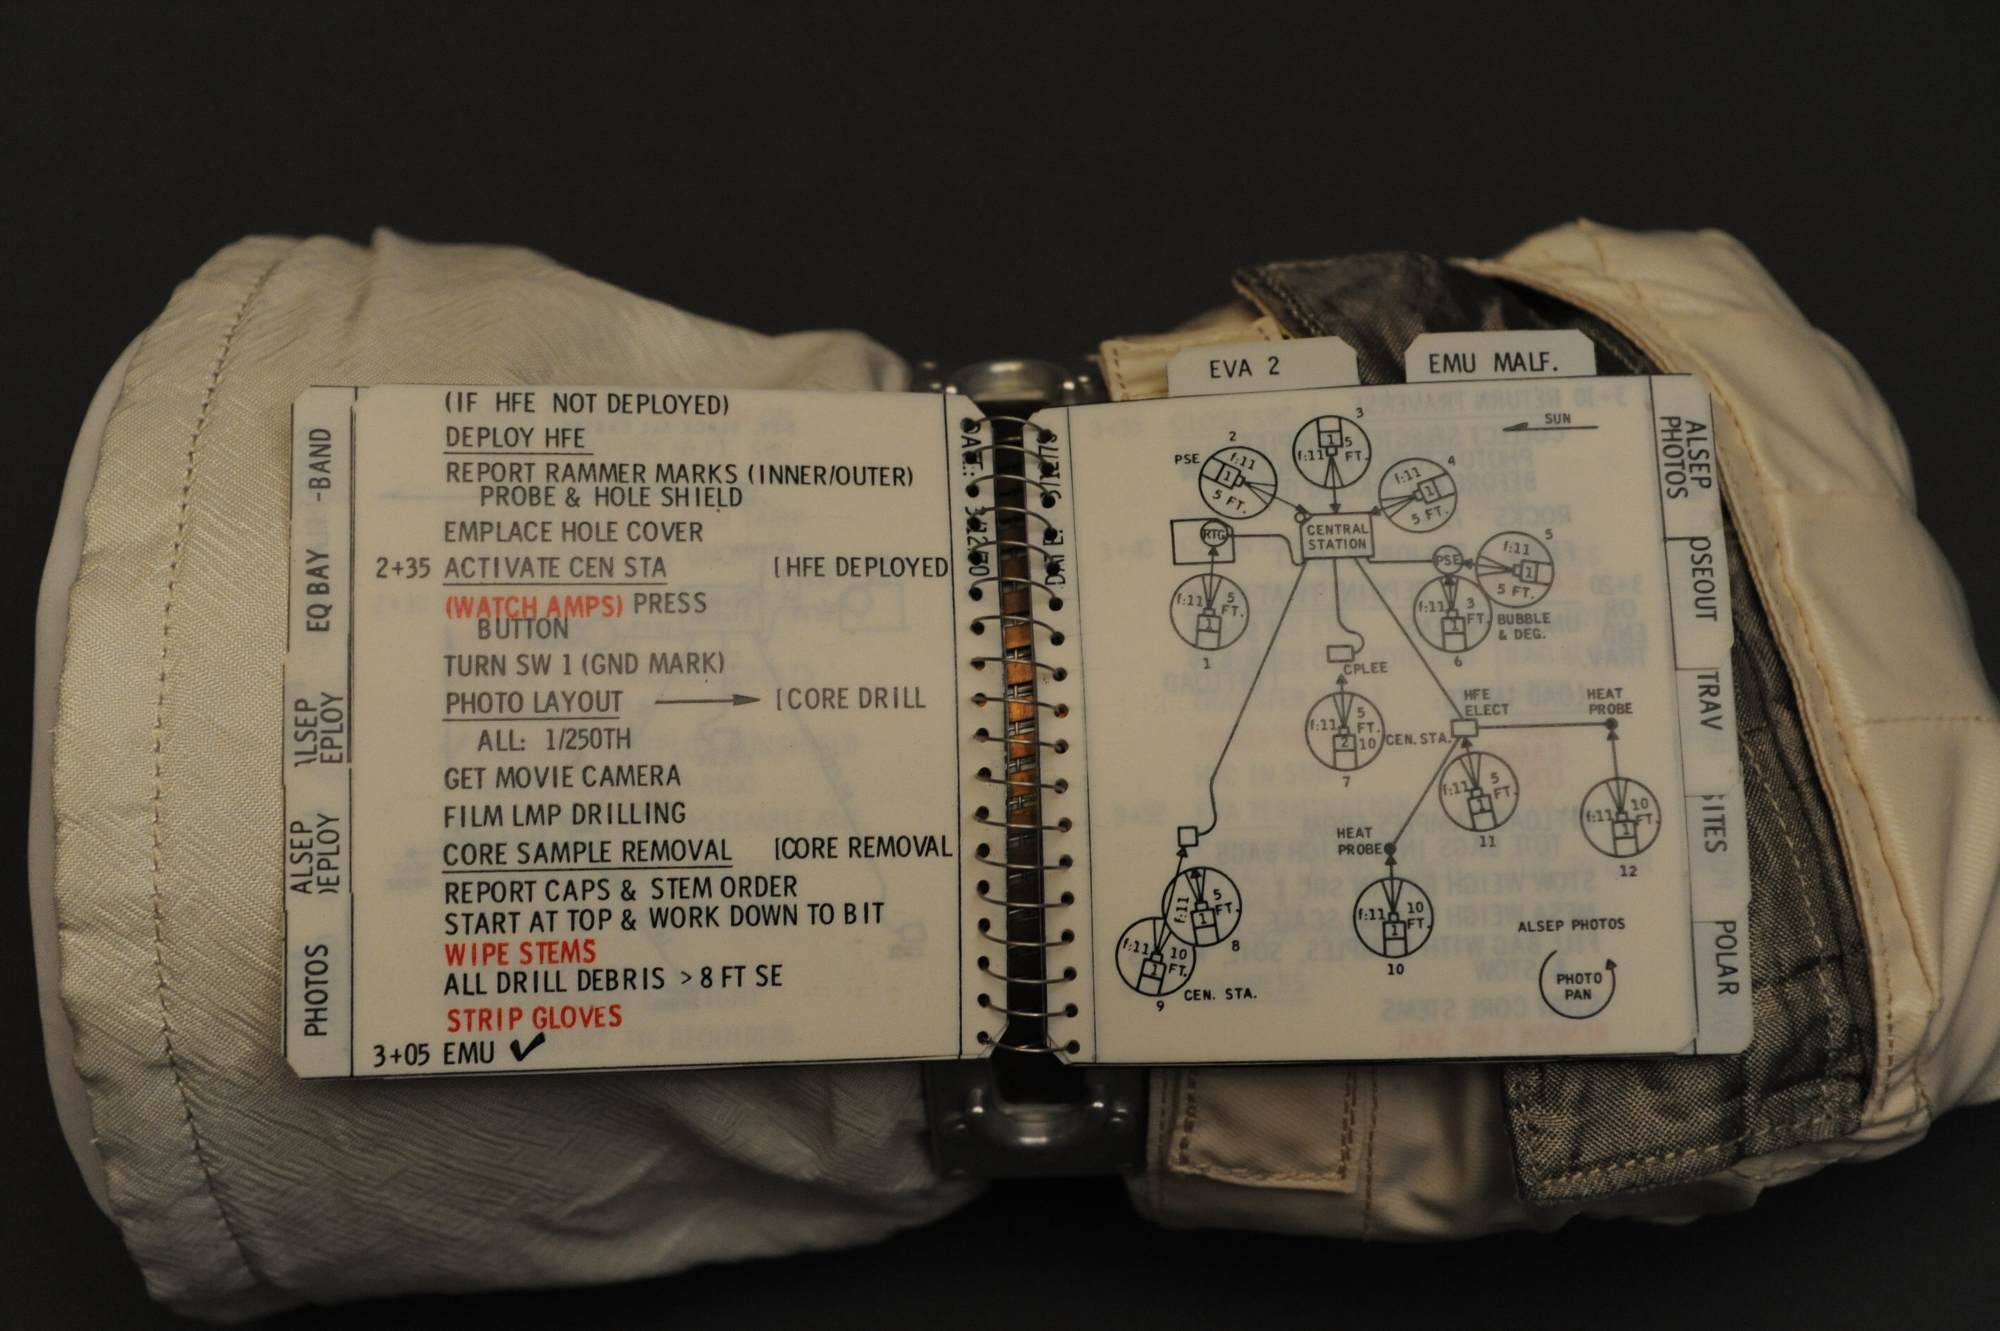 (IF HFE NOT DEPLOYED)
DEPLOY HFE
REPORT RAMMER MARKS (INNER/OUTER)
PROBE & HOLE SHIELD
EMPLACE HOLE COVER
2+35 ACTIVATE CEN STA [HFE DEPLOYED
(WATCH AMPS) PRESS
BUTTON
TURN SW 1 (GND MARK)
PHOTO LAYOUT → [CORE DRILL
ALL: 1/250TH
GET MOVIE CAMERA
FILM LMP DRILLING
CORE SAMPLE REMOVAL [CORE REMOVAL
REPORT CAPS & STEM ORDER
START AT TOP & WORK DOWN TO BIT
WIPE STEMS
ALL DRILL DEBRIS > 8 FT SE
STRIP GLOVES
3+05 EMU ✓
-BAND
EQ BAY
ALSEP
DEPLOY
PHOTOS
EVA 2
EMU MALF.
SUN
3
f:11 1 5 FT.
2
PSE
f:11 1 5 FT.
4
f:11 1 5 FT.
RTG
CENTRAL
STATION
PSE
5
f:11 1 5 FT.
f:11 1 5 FT.
1
f:11 1 3 FT.
BUBBLE
& DEG.
6
CPLEE
f:11 2 5 FT. 10
CEN. STA.
7
HFE
ELECT
HEAT
PROBE
f:11 1 5 FT.
11
f:11 1 10 FT.
12
HEAT
PROBE
f:11 1 5 FT.
8
f:11 1 10 FT.
9
CEN. STA.
f:11 1 10 FT.
10
ALSEP PHOTOS
PHOTO
PAN
ALSEP
PHOTOS
OSEOUT
TRAV
ITES
POLAR